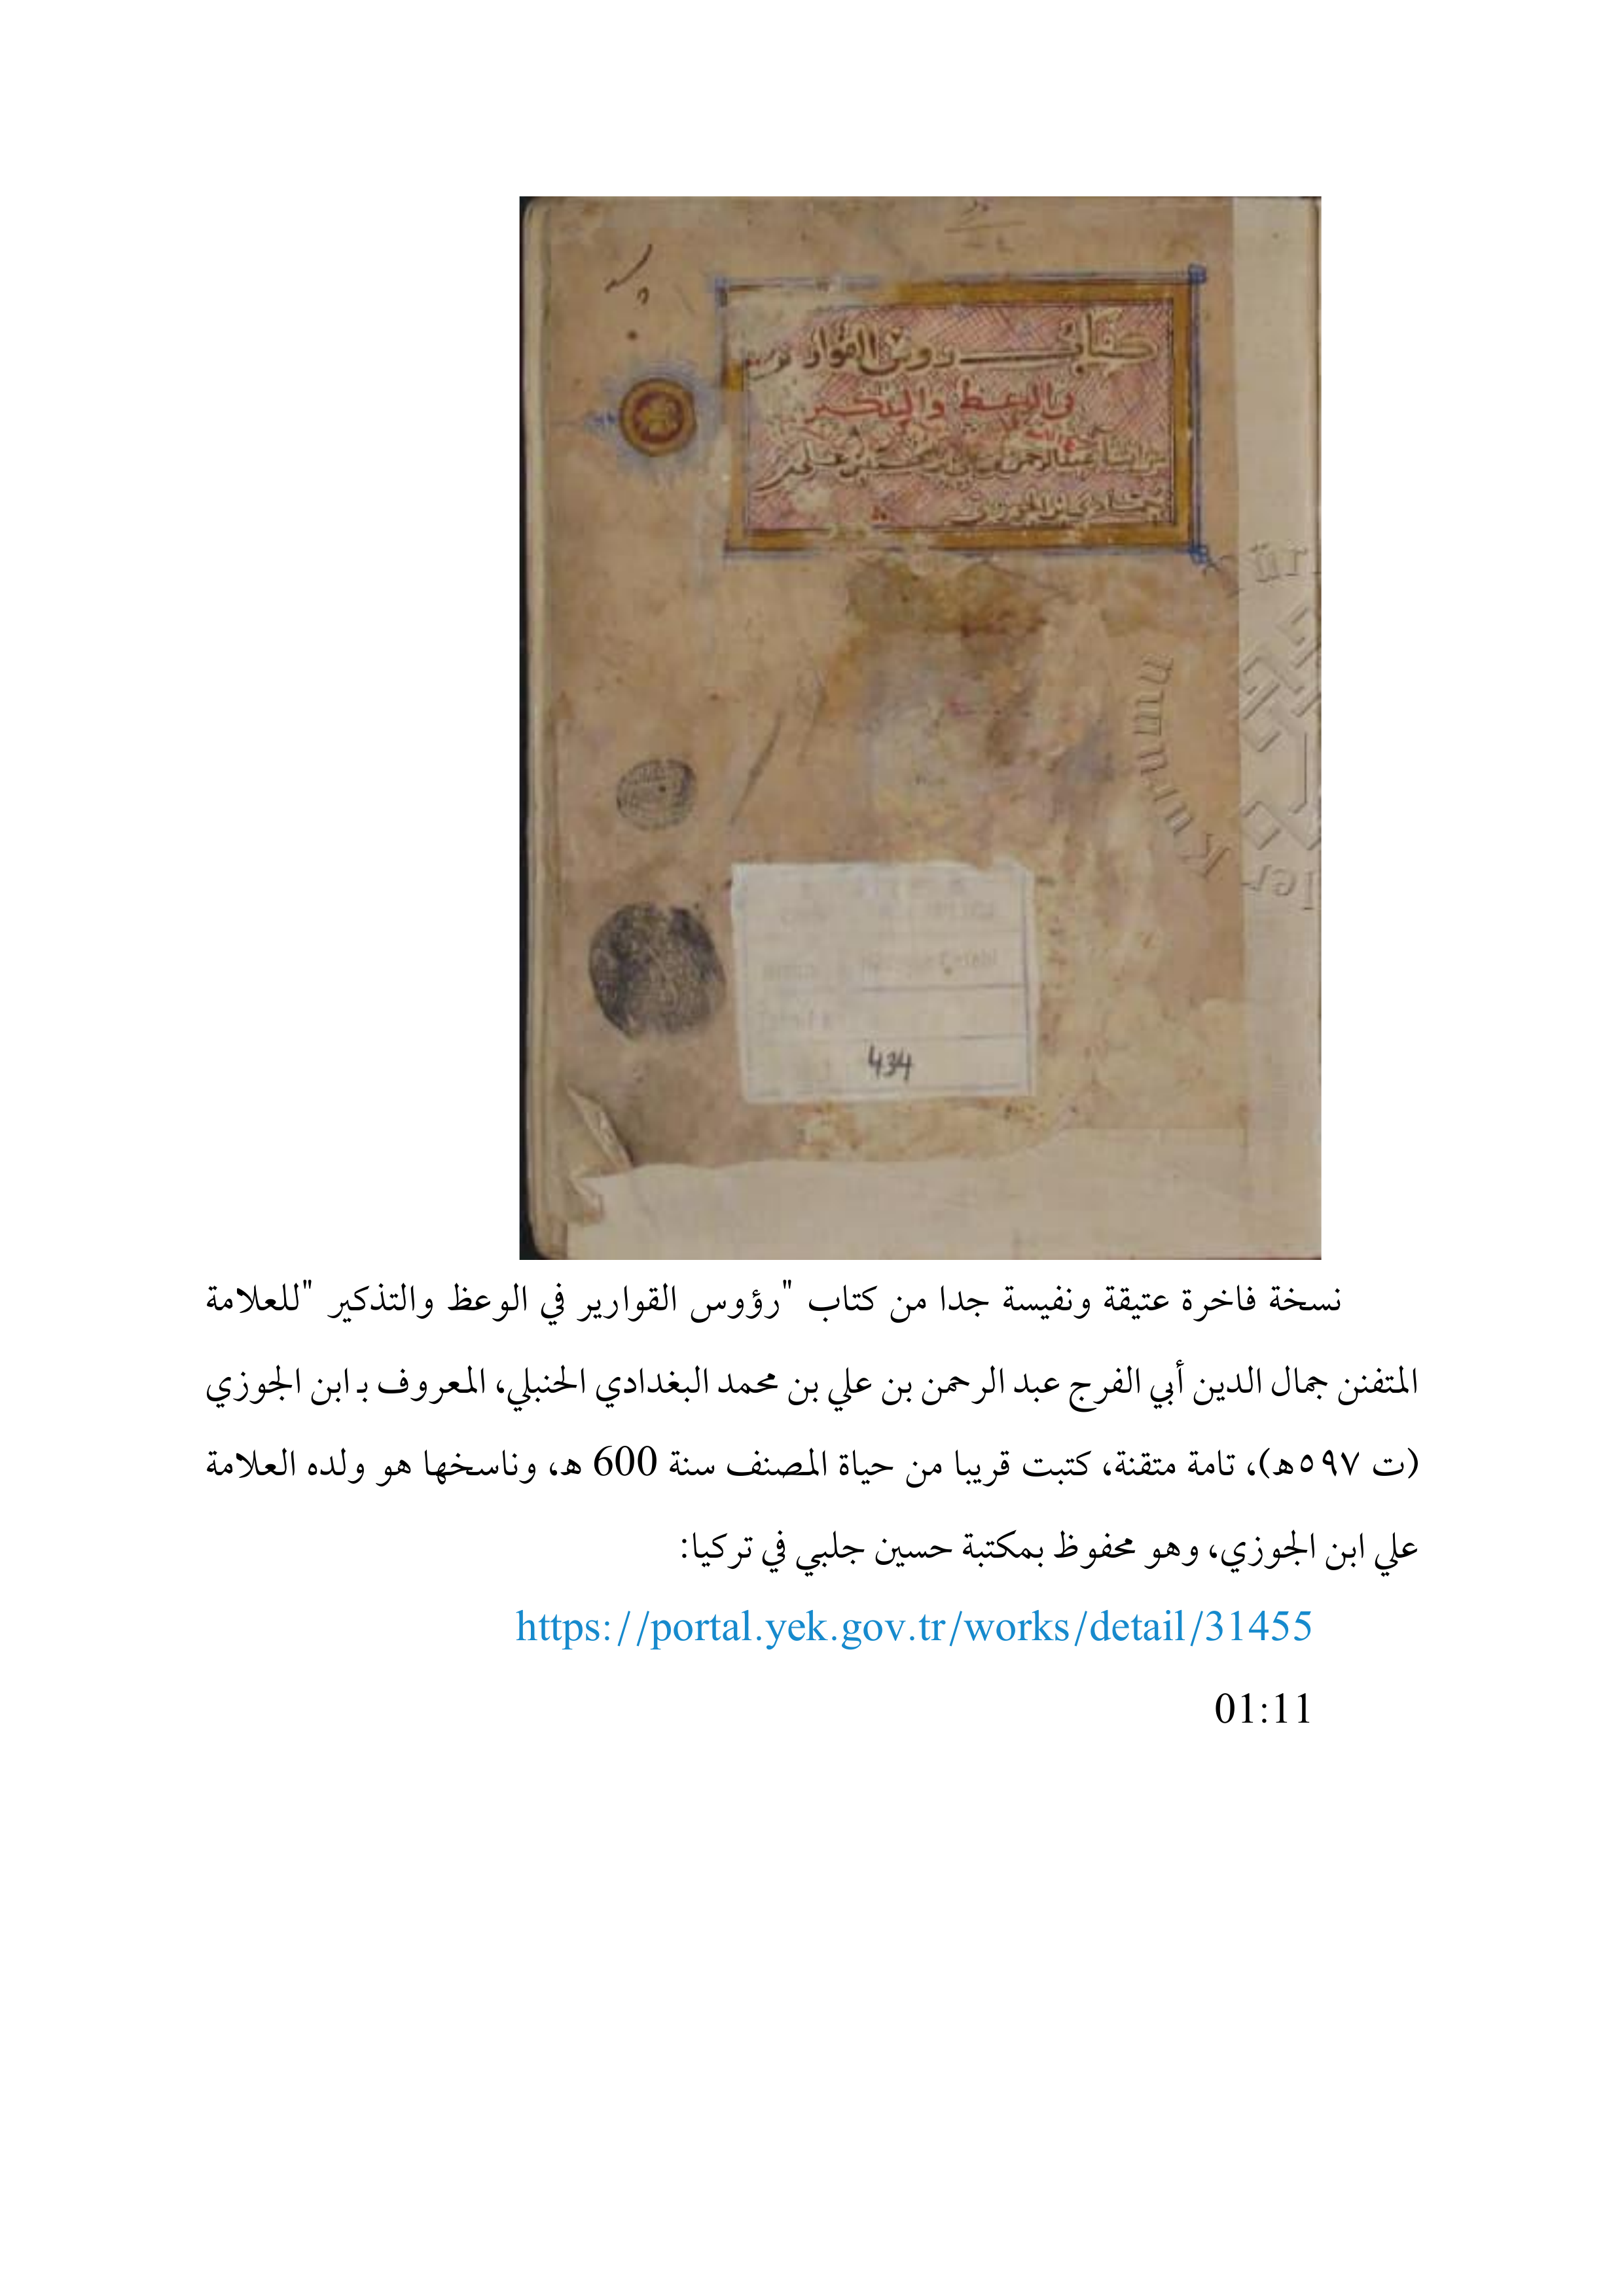 كتاب رؤس القوارير
في الوعظ والتذكير
عبد الرحمن بن علي بن محمد بن علي بن
حمادى بن الجوزى
434
نسخة فاخرة عتيقة ونفيسة جدا من كتاب "رؤوس القوارير في الوعظ والتذكير "للعلامة
المتفنن جمال الدين أبي الفرج عبد الرحمن بن علي بن محمد البغدادي الحنبلي، المعروف بـ ابن الجوزي
(ت ٥٩٧هـ)، تامة متقنة، كتبت قريبا من حياة المصنف سنة 600 هـ، وناسخها هو ولده العلامة
علي ابن الجوزي، وهو محفوظ بمكتبة حسين جلبي في تركيا:
https://portal.yek.gov.tr/works/detail/31455
01:11